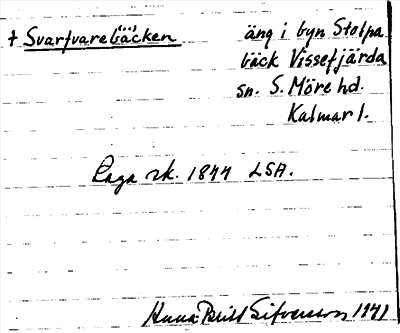 † Svarfvarebäcken äng i byn Stolpa
bäck Vissefjärda
sn. S. Möre hd.
Kalmar l.
Laga sk. 1844 LSA.
Anna-Britt Sifvensson 1941